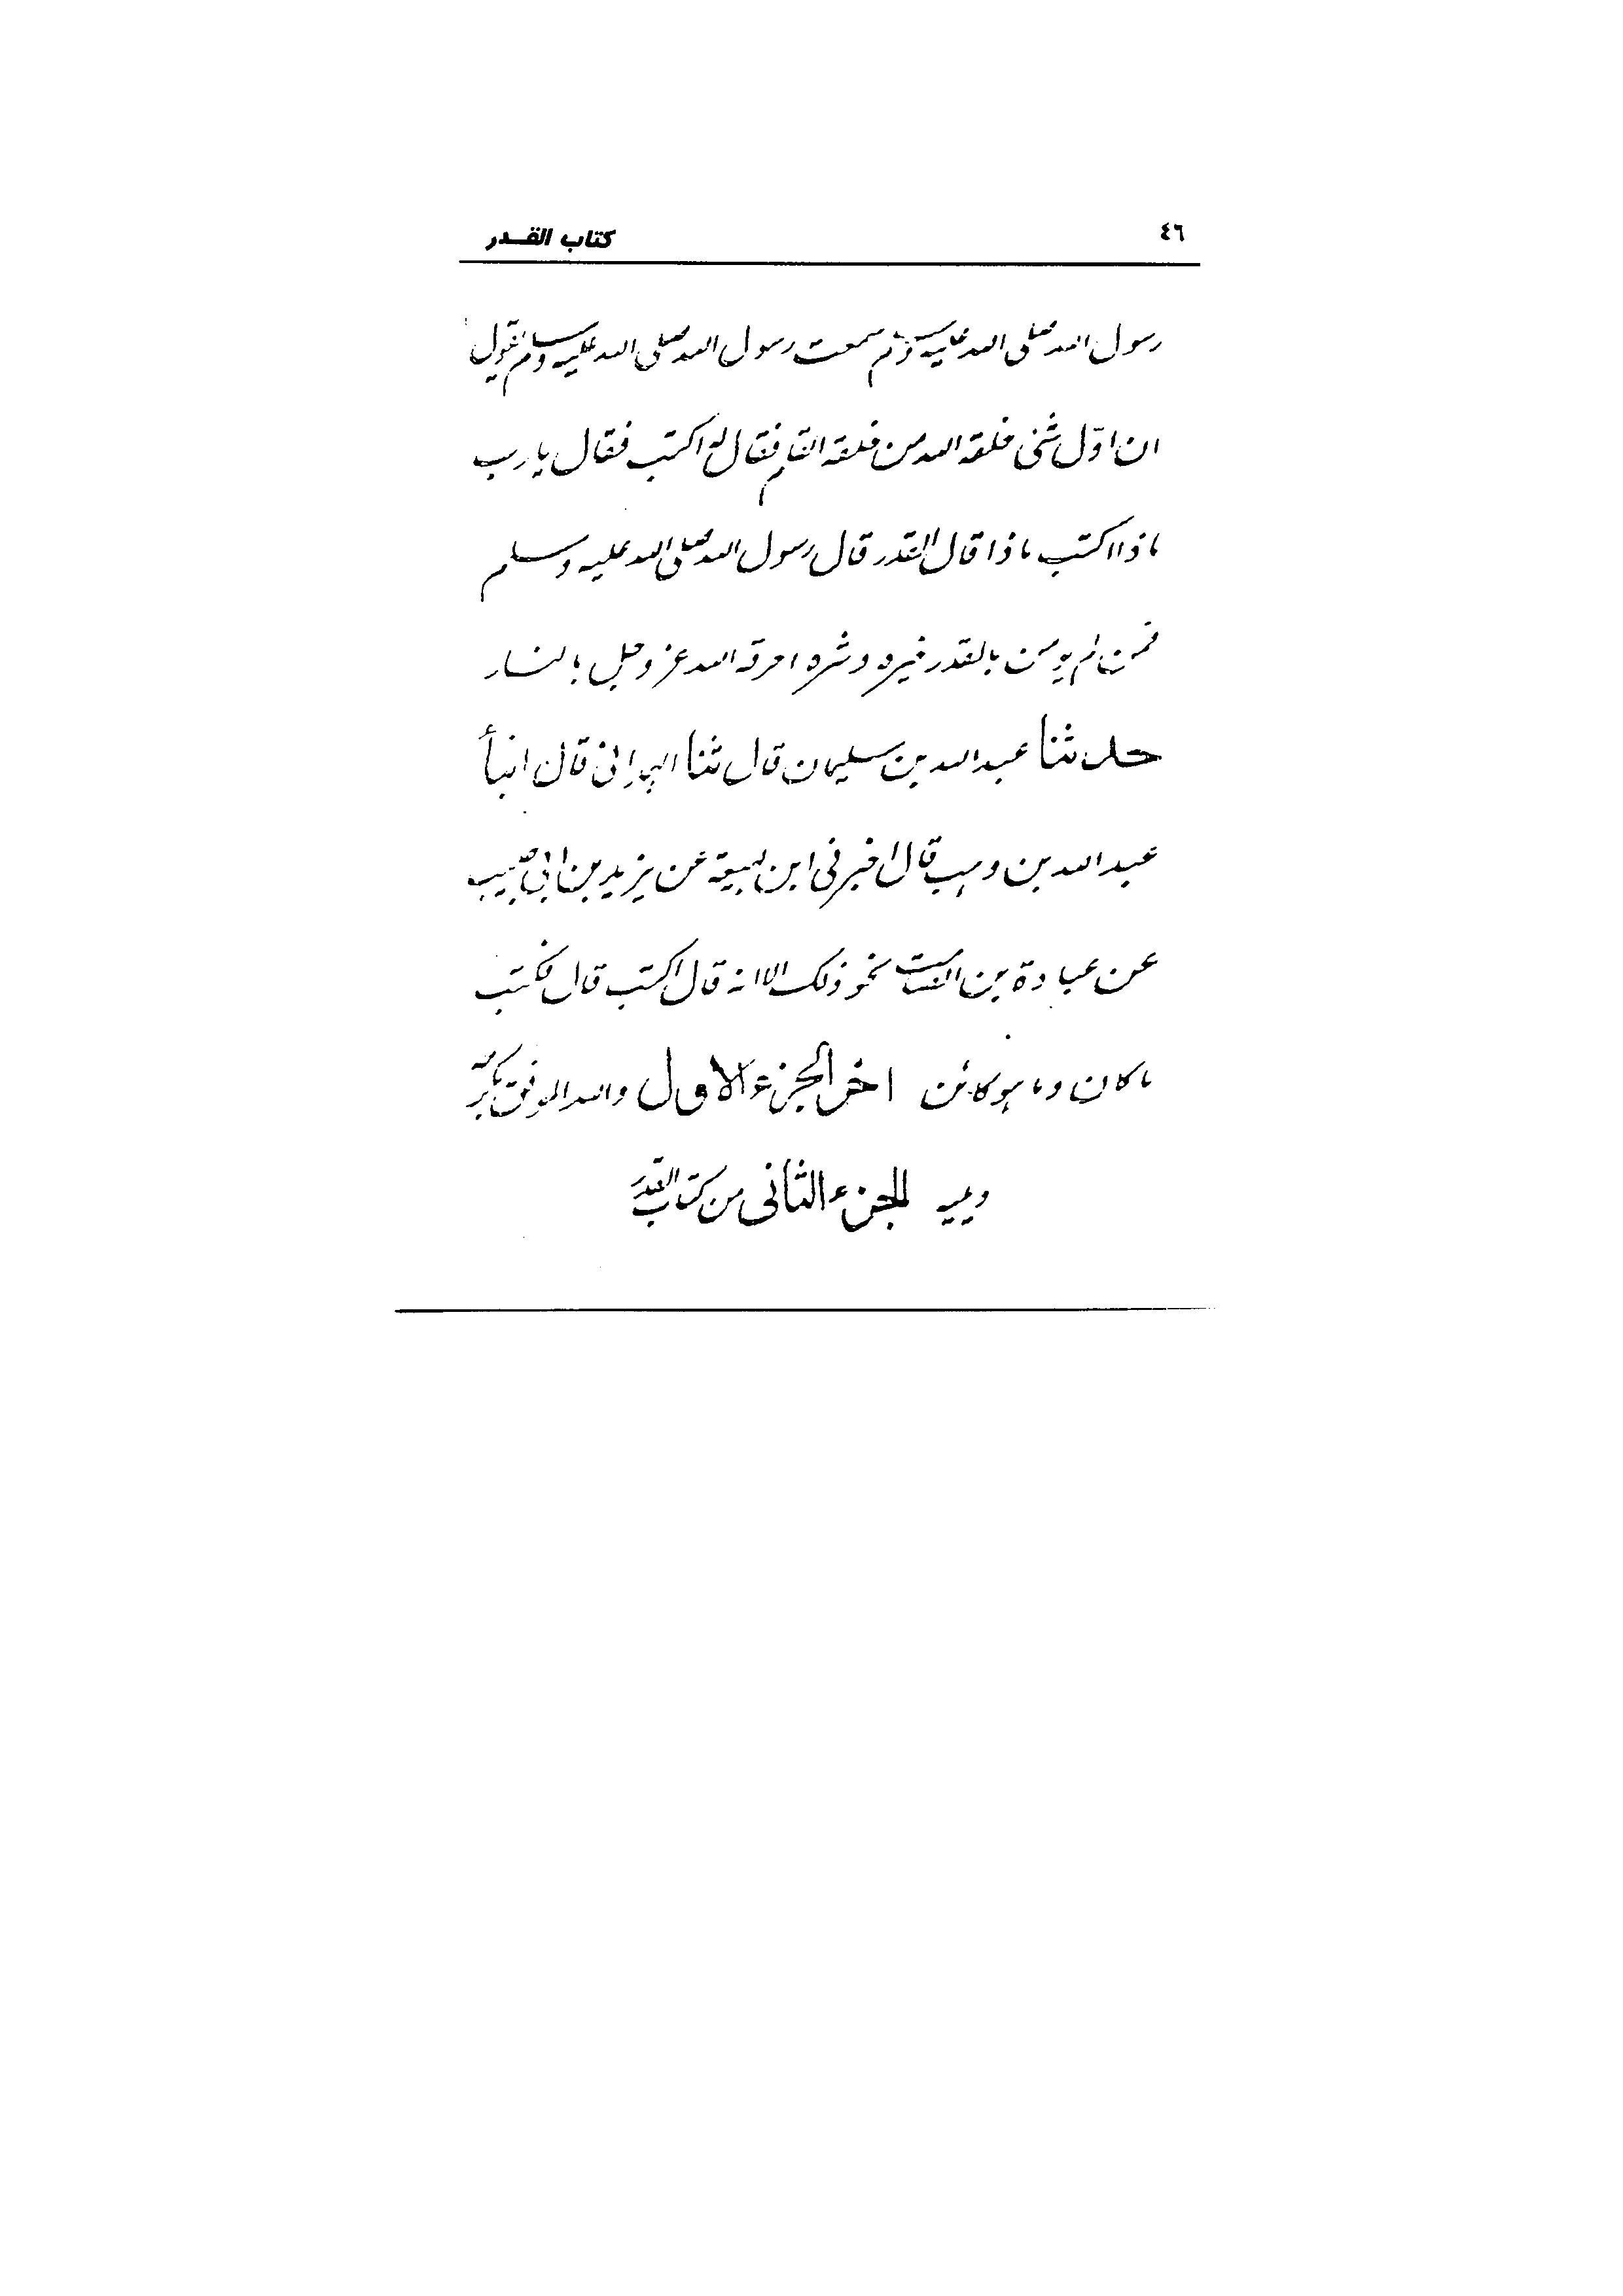 ٤٦
كتاب القـدر
رسول الله صلى الله عليه وسلم سمعت رسول الله صلى الله عليه وسلم يقول
ان اوّل شئ خلقه الله من خلقه القلم فقال له اكتب فقال يا رب
ماذا اكتب ماذا قال القدر قال رسول الله صلى الله عليه وسلم
فمن لم يومن بالقدر خيره وشره احرقه الله عز وجل بالنار
حدثنا عبد الله بن سليمان قال ثنا قال انبأ
عبد الله بن وهب قال اخبرنى ابن لهيعة عن يزيد بن ابى حبيب
عن عبادة بن الصامت نحو ذلك الا انه قال اكتب قال فكتب
ما كان وما هو كائن اخر الجزء الاول والله الموفق
ويليه الجزء الثانى من كتاب القدر